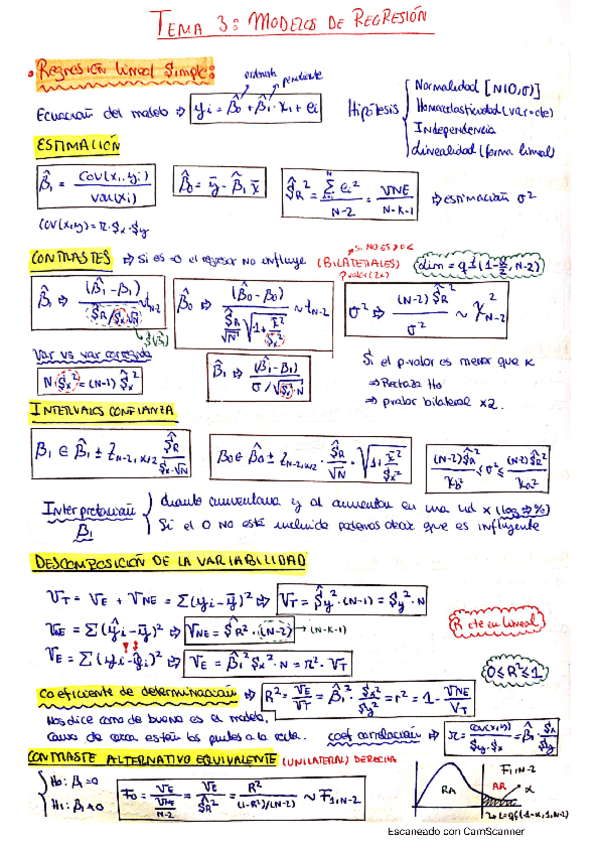 TEMA 3: MODELOS DE REGRESIÓN
Regresión lineal Simple:
ordenada pendiente
Ecuación del modelo ⇒ yi = β̂0 + β̂1 · xi + ei
Hipótesis { Normalidad [N(0,σ)]
Homocedasticidad (var=cte)
Independencia
Linealidad (forma lineal)
ESTIMACIÓN
β̂1 = cov(xi,yi) / var(xi)
β̂0 = ȳ - β̂1 x̄
ŜR² = Σ ei² / N-2 = VNE / N-K-1 ⇒ estimación σ²
cov(x,y) = r · Sx · Sy
CONTRASTES ⇒ Si es =0 el regresor NO influye (BILATERALES)
β̂1 ⇒ (β̂1 - β1) / ŜR/Sx√N ~ tN-2
β̂0 ⇒ (β̂0 - β0) / ŜR/√N √1+x̄²/Sx² ~ tN-2
σ² ⇒ (N-2) ŜR² / σ² ~ χ²N-2
Var vs var corregida
N · Sx² = (N-1) Ŝx²
β̂1 ⇒ (β̂1 - β1) / σ/√Sx² · N
Si el p-valor es menor que α
⇒ Rechazo H0
⇒ pvalor bilateral x2.
INTERVALOS CONFIANZA
Interpretación β1 { Cuanto aumentaría y al aumentar en una ud x (log ⇒ %)
Si el 0 NO está incluido podemos decir que es influyente
DESCOMPOSICIÓN DE LA VARIABILIDAD
VT = VE + VNE = Σ(yi - ȳ)² ⇒ VT = Ŝy² · (N-1) = Sy² · N
⇒ VNE = ŜR² · (N-2) → (N-K-1)
R cte en lineal
⇒ VE = β̂1² Sx² · N = r² · VT
0 ≤ R² ≤ 1
Coeficiente de determinación ⇒ R² = VE/VT = β̂1² · Sx²/Sy² = r² = 1 - VNE/VT
Nos dice como de bueno es el modelo,
coef correlación ⇒ r = cov(x,y) / Sy · Sx = β̂1 · Sx/Sy
CONTRASTE ALTERNATIVO EQUIVALENTE (UNILATERAL) DERECHA
{ H0: β1 = 0
H1: β1 ≠ 0
F0 = VE / VNE/N-2 = VE / ŜR² = R² / (1-R²)/(N-2) ~ F1,N-2
F1,N-2
RA AR α
Escaneado con CamScanner